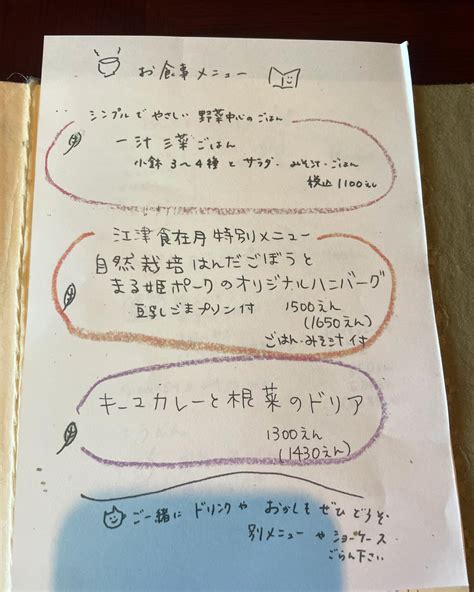 お食事メニュー
シンプルで やさしい 野菜中心のごはん
一汁 三菜 ごはん
小鉢 3〜4種 と サラダ・みそ汁・ごはん
税込 1100えん
江津 食在月 特別メニュー
自然栽培 はんだごぼうと
まる姫ポークのオリジナルハンバーグ
豆乳ごまプリン付 1500えん
(1650えん)
ごはん・みそ汁付
キーマカレーと根菜のドリア
1300えん
(1430えん)
ご一緒に ドリンクや おかしも ぜひ どうぞ
別メニュー や ショーケース
ごらん下さい